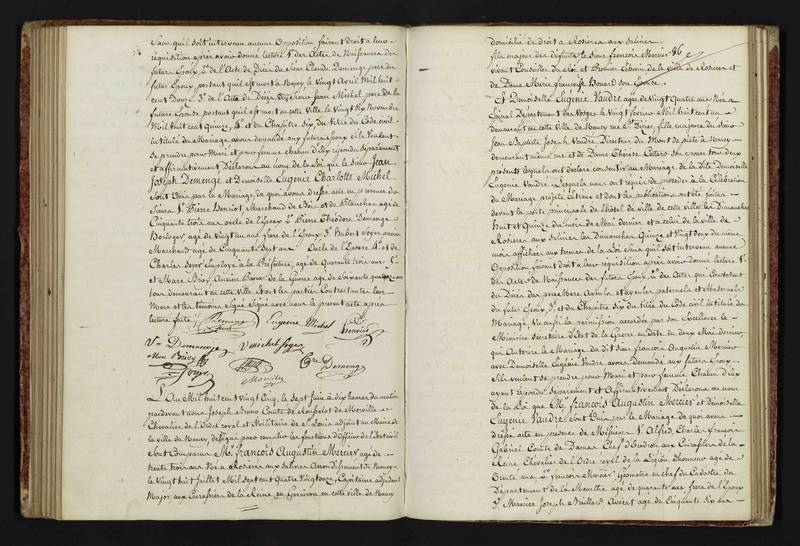 Sans qu'il soit intervenu aucune Opposition faisant droit à leur
réquisition après avoir donné lecture 1º des Actes de Naissances des
futurs Epoux 2º de l'Acte de Décès du Sieur Claude Demenge père du
futur Epoux portant qu'il est mort à Nancy, le Vingt Avril Mil huit
cent Douze 3º de l'Acte de Décès du Sieur Jean Michel père de la
future Epouse portant qu'il est mort en cette Ville le Vingt six Novembre
Mil huit cent Quinze, 4º et du Chapitre six du titre du Code civil
intitulé du Mariage avons demandé aux futurs Epoux s'ils veulent
se prendre pour Mari et pour femme chacun d'eux ayant répondu séparément
et affirmativement Déclarons au nom de la Loi que le Sieur Jean
Joseph Demenge et Demoiselle Eugénie Charlotte Michel
sont Unis par le Mariage, de quoi avons dressé acte en présence des
Sieurs 1º Pierre Henriot Marchand de Bois et de Planches agé de
Cinquante trois ans oncle de l'Epoux 2º Pierre Théodore Demenge
Horloger, agé de vingt huit ans frère de l'Epoux 3º Hubert Soyer ancien
Marchand agé de Cinquante sept ans Oncle de l'Epouse 4º et de
Charles Soyer Employé à la Préfecture, agé de Quarante trois ans
et Marc Bricy Ancien Payeur de la Guerre agé de Soixante quatorze ans
tous demeurant en cette Ville et ont les parties Contractantes leur
Mère et les témoins Signé avec nous le présent acte après
lecture faite.
Demenge Eugénie Michel P. Henriot
Ve Demenge V Michel Soyer
Marc Bricy Ch. Demenge
Soyer Morville
L'An Mil huit cent Vingt Cinq, le Sept Juin à dix heures du matin
pardevant nous Joseph Bruno Comte de Rousselot de Morville
Chevalier de l'Ordre royal et Militaire de St Louis adjoint au Maire de
la ville de Nancy, délégué pour remplir les fonctions d'Officier de l'Etat Civil
Sont Comparus Mr. François Augustin Mercier agé de
trente trois ans Né à Rosières aux Salines Arrondissement de Nancy
le Vingt huit Juillet Mil Sept cent Quatre Vingt onze, Capitaine adjudant
Major aux Cuirassiers de la Reine en Garnison en cette ville de Nancy
domicilié de droit à Rosières aux Salines
fils majeur des défunts le Sieur françois Mercier 86
vivant Conseiller du Roi et Premier Echevin de la ville de Rosières et
de Dame Marie françoise Bouard son Epouse.
Et Demoiselle Eugénie Vaudré agée de Vingt Quatre ans Née à
Epinal Département des Vosges le Vingt février Mil huit cent un
demeurant en cette Ville de Nancy rue St Dizier, fille majeure du Sieur
Jean Baptiste Joseph Vaudré Directeur du Mont de piété à Nancy
demeurant même rue et de Dame Thérèse Collers Son epouse tous deux
présents lesquels ont déclaré consentir au Mariage de la dite Demoiselle
Eugénie Vaudré. Lesquels nous ont requis de procéder à la Célébration
du Mariage projeté entr'eux et dont les publications ont été faites
devant la porte principale de l'hôtel de ville de cette ville les Dimanches
huit et Quinze du mois de Mai dernier et celui de la ville de
Rosières aux Salines les Dimanches Quinze et Vingt deux du même
mois afficher aux termes de la Loi Sans qu'il soit intervenu aucune
Opposition faisant droit à leur réquisition après avoir donné lecture 1º
des Actes de Naissances des futurs Epoux 2º des Actes qui Constatent
du Décès des père Mère Ayeuls et Ayeules paternels et Maternels
du futur Epoux, 3º et du Chapitre Six du titre du Code civil intitulé du
Mariage. Vu aussi la permission accordée par son Excellence le
Ministre Secrétaire d'Etat de la Guerre en date du douze Mai dernier
qui Autorise le Mariage du dit Sieur françois Augustin Mercier
avec Demoiselle Eugénie Vaudré avons Demandé aux futurs Epoux
S'ils veulent se prendre pour Mari et pour femme Chacun d'eux
ayant répondu Séparément et Affirmativement Déclarons au nom
de la Loi que Mr. François Augustin Mercier et Demoiselle
Eugénie Vaudré sont Unis par le Mariage de quoi avons
dressé acte en présence de Messieurs 1º Alfred Charles françois
Gabriel Comte de Damas Chef d'Escadron aux Cuirassiers de la
Reine Chevalier de l'Ordre royal de la Légion d'honneur agé de
Trente ans 2º françois Mercier Géomètre en chef du Cadastre du
Département de la Meurthe agé de quarante ans frère de l'Epoux
3º Maurice Joseph Bailland Avocat agé de Cinquante six ans